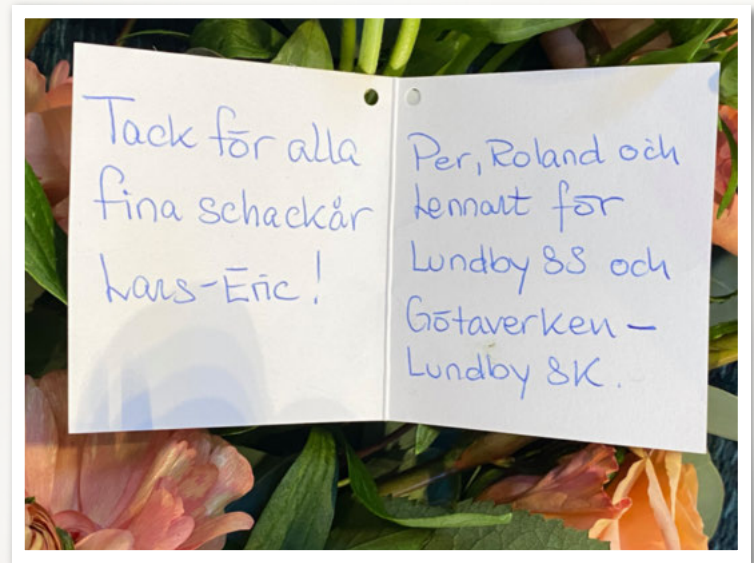 Tack för alla
fina schackår
Lars-Eric!
Per, Roland och
Lennart för
Lundby SS och
Götaverken-
Lundby SK.